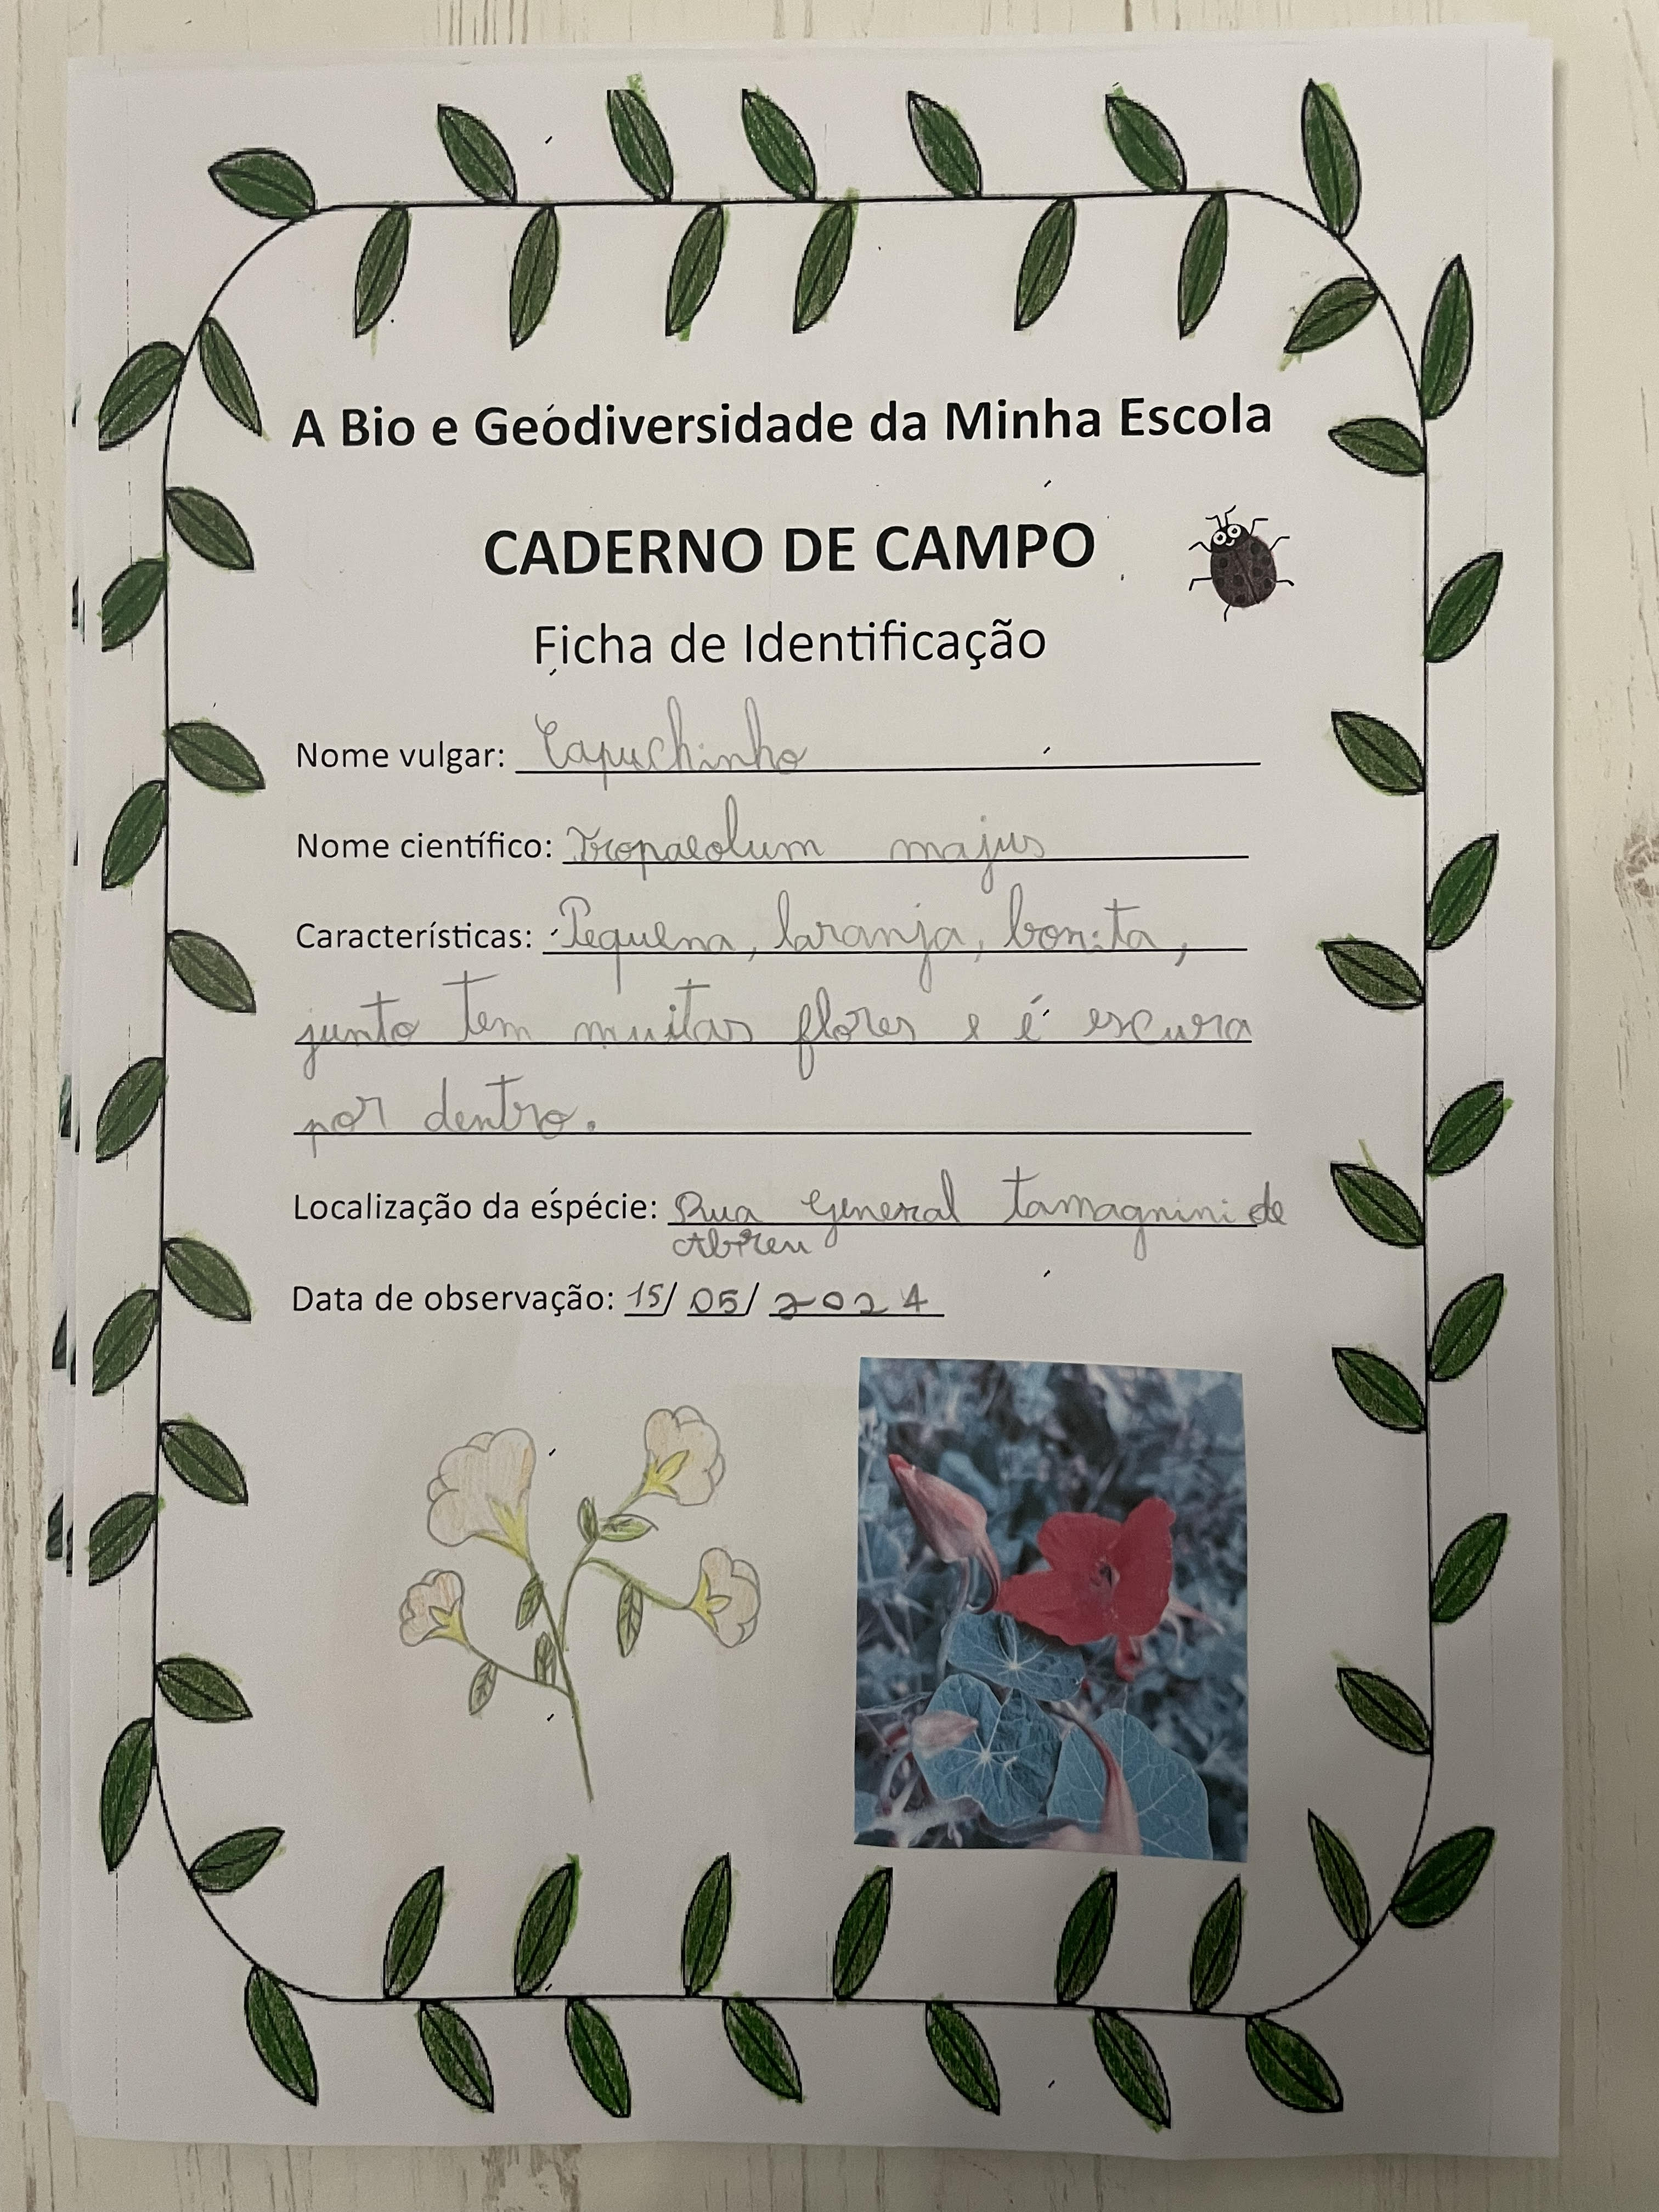 A Bio e Geodiversidade da Minha Escola
CADERNO DE CAMPO
Ficha de Identificação
Nome vulgar: Capuchinho
Nome científico: Tropaeolum majus
Características: Pequena, laranja, bonita,
junto tem muitas flores e é escura
por dentro.
Localização da espécie: Rua General tamagnini de
Abreu
Data de observação: 15/ 05/ 2024